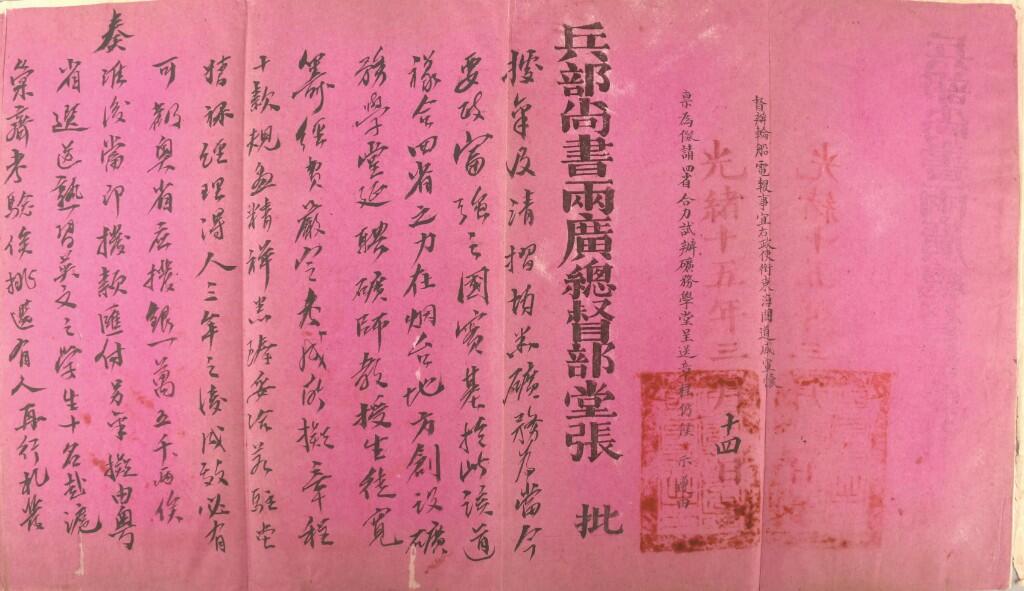 光緒十五年三月十四日
督辦輪船電報事宜布政使銜東海關道盛宣懷
稟為擬請四省合力試辦礦務學堂呈送章程仍候示遵由
兵部尚書兩廣總督部堂張 批
據稟及清摺均悉礦務為當今
要政富強之國實基於此該道
議合四省之力在烟台地方創設礦
務學堂延聘礦師教授生徒寬
籌經費嚴定考成所擬章程
十款規畫精詳悉臻妥洽若駐堂
提調經理得人三年之後成效必有
可觀粵省應攤銀一萬五千兩俟
奏准後當即撥款匯付另單擬由粵
省選送熟習英文之學生十名赴滬
彙齊考驗俟挑選有人再行札飭